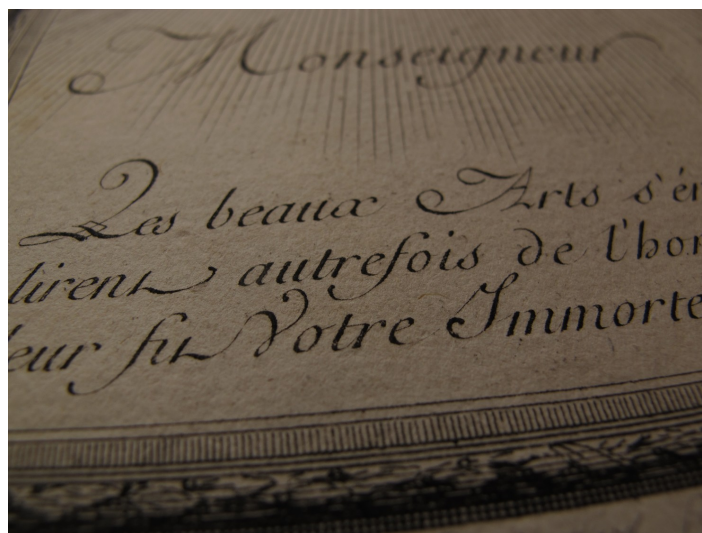 Monseigneur
Les beaux Arts s'én
lirent autrefois de l'hon
eur fit Votre Immorte